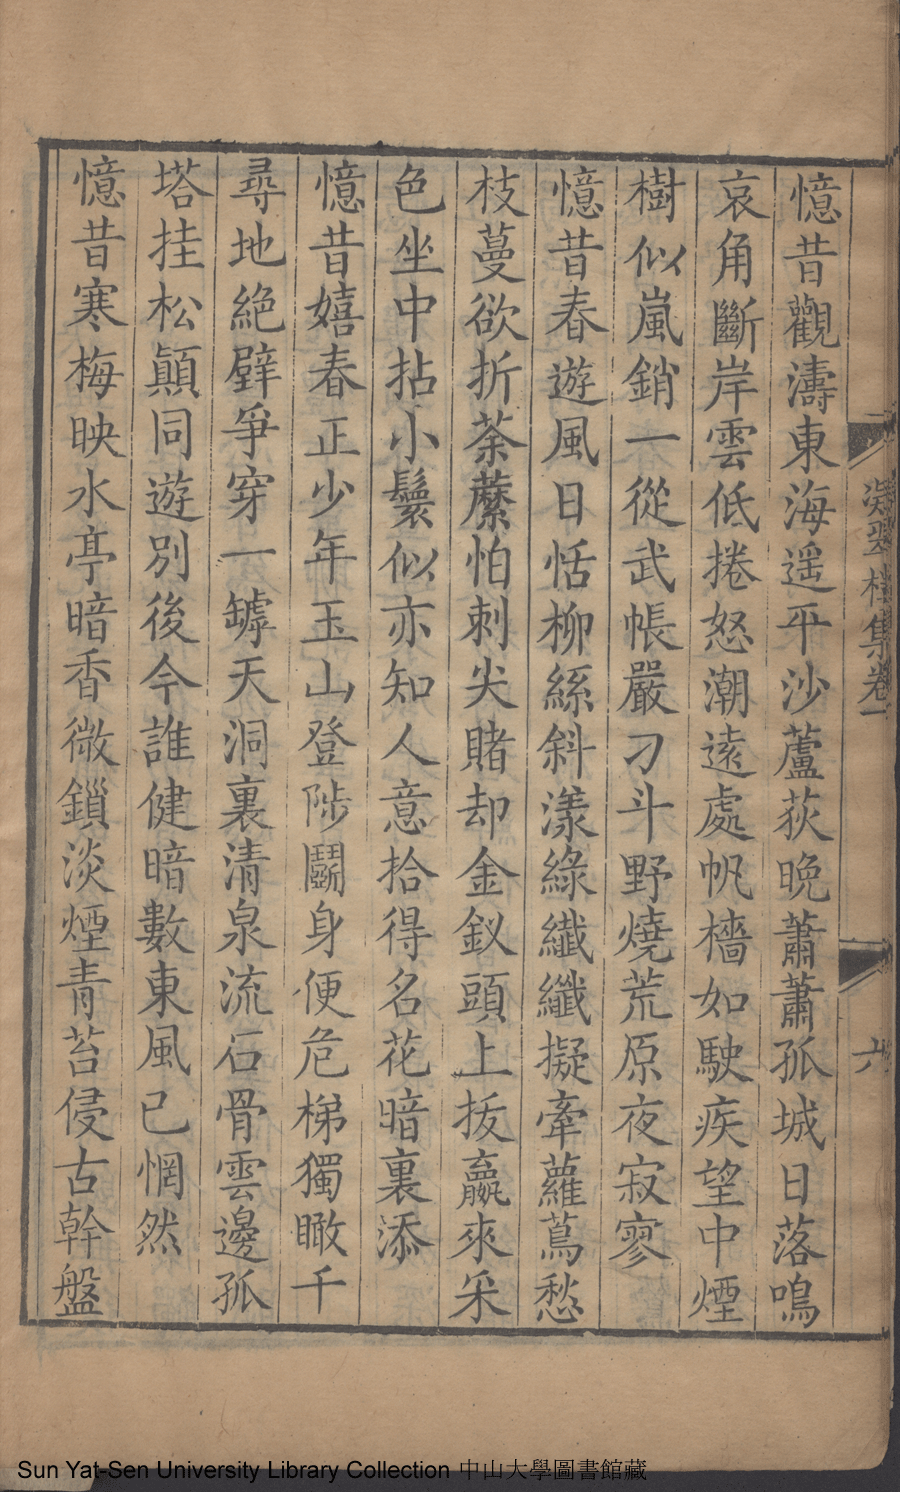 憶昔觀濤東海遥平沙蘆荻晚蕭蕭孤城日落鳴
哀角斷岸雲低捲怒潮遠處帆檣如駛疾望中煙
樹似嵐銷一從武帳嚴刁斗野燒荒原夜寂寥
憶昔春遊風日恬柳絲斜漾綠纖纖擬牽蘿蔦愁
枝蔓欲折荼蘼怕刺尖賭却金釵頭上拔贏來采
色坐中拈小鬟似亦知人意拾得名花暗裏添
憶昔嬉春正少年玉山登陟鬭身便危梯獨瞰千
尋地絕壁爭穿一罅天洞裏清泉流石骨雲邊孤
塔挂松顛同遊別後今誰健暗數東風已惘然
憶昔寒梅映水亭暗香微鎖淡煙青苔侵古幹盤
凝翠樓集卷一
六
Sun Yat-Sen University Library Collection 中山大學圖書館藏